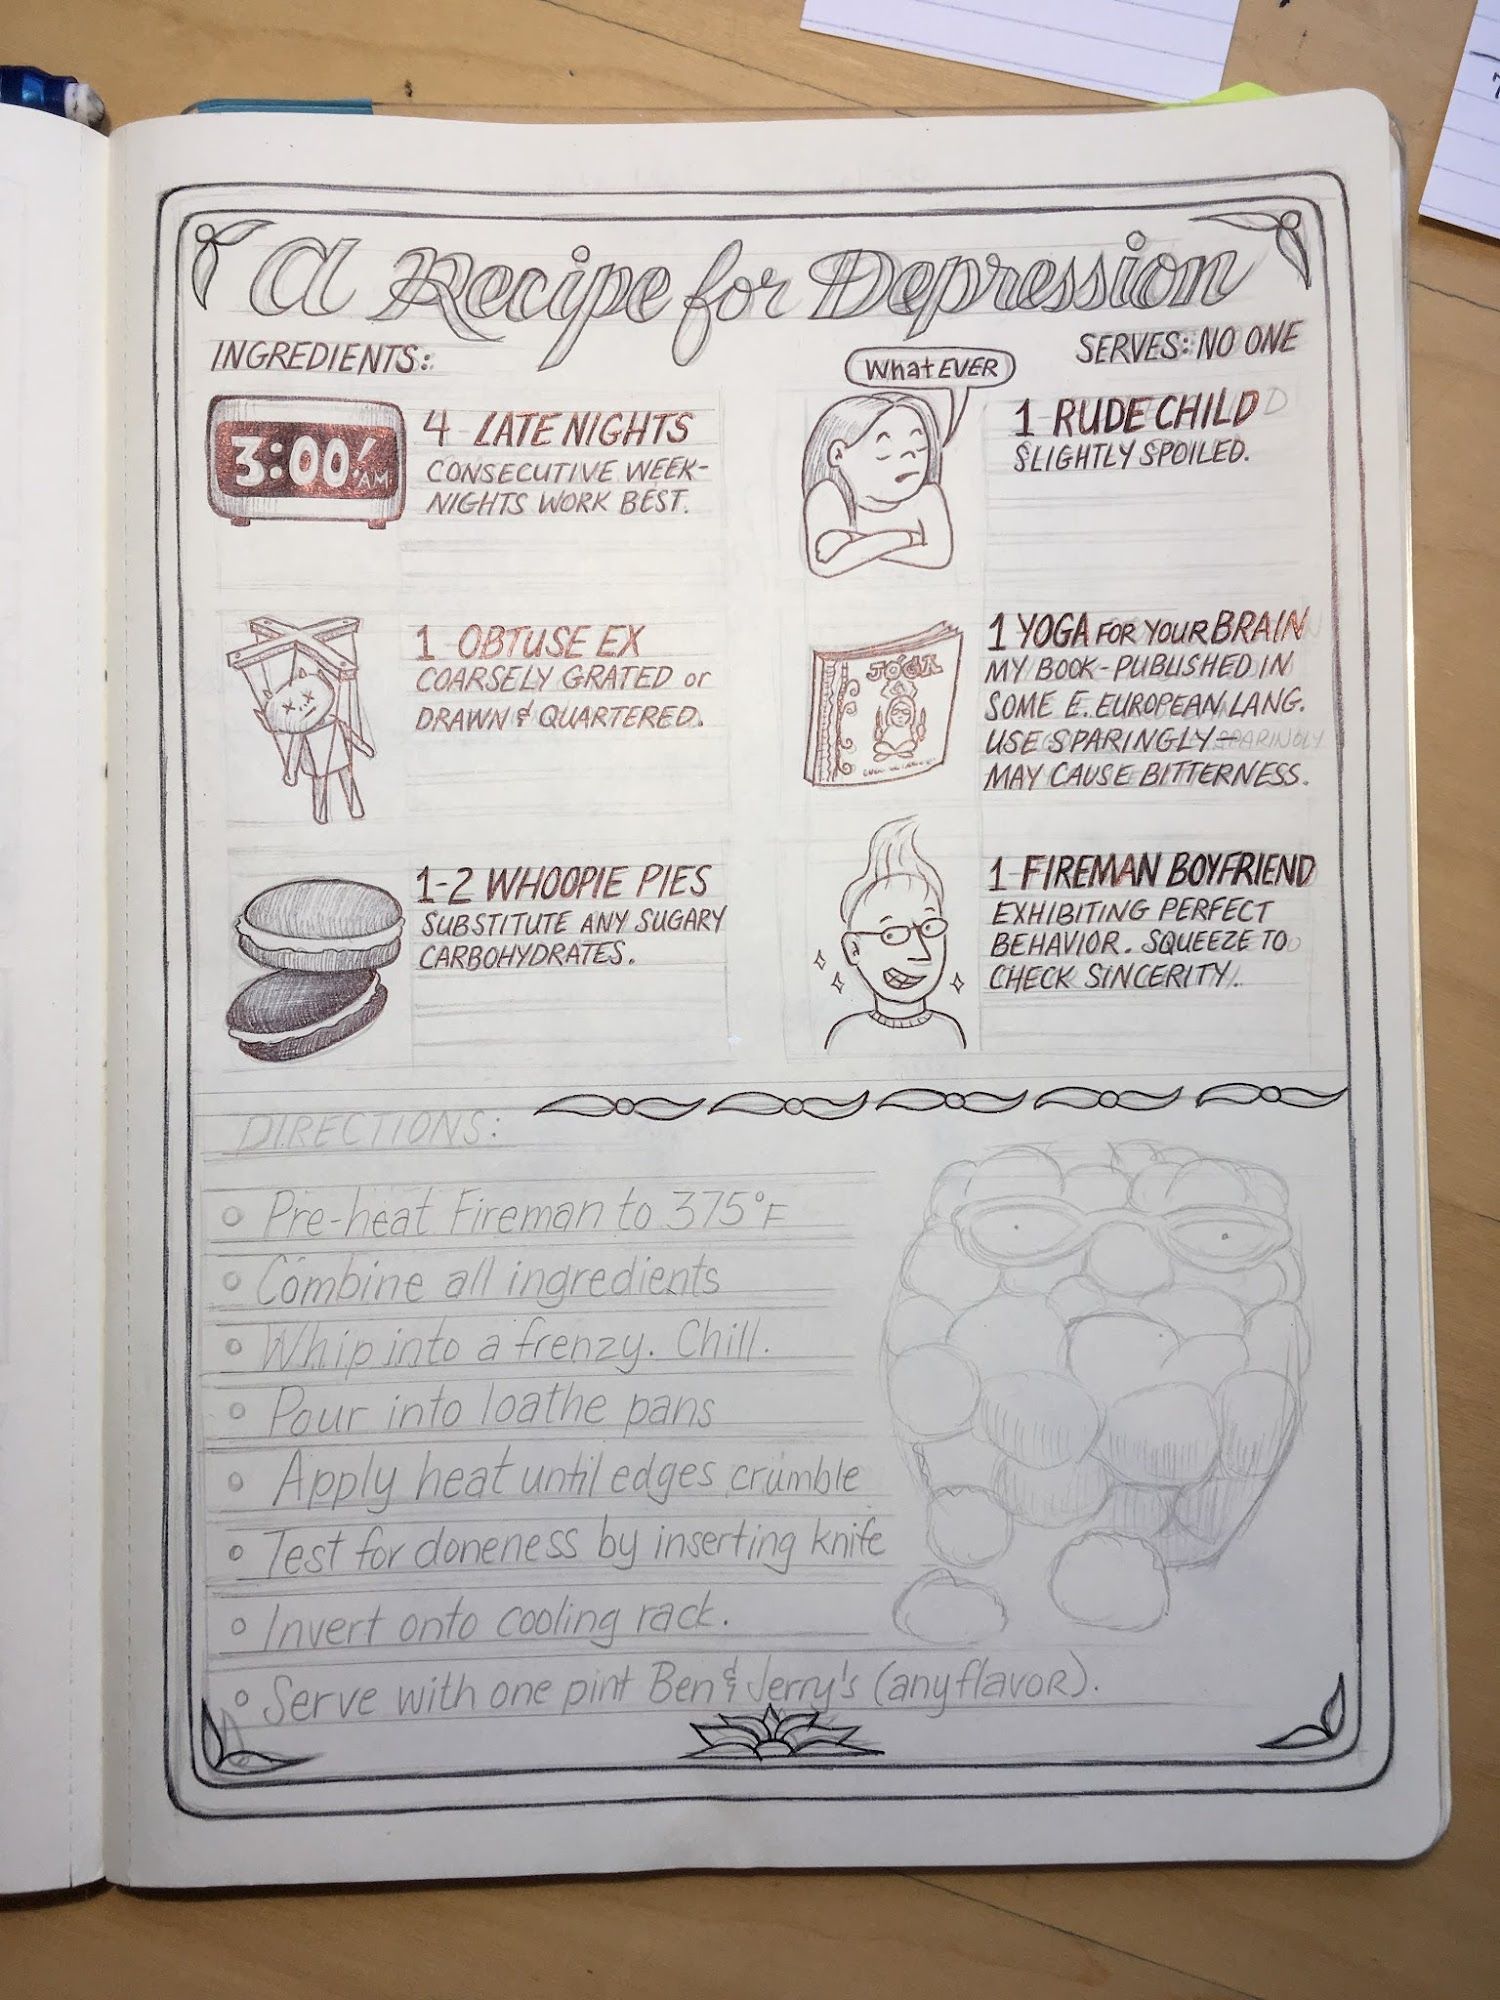 A Recipe for Depression
INGREDIENTS:
SERVES: NO ONE
3:00 AM
4 LATE NIGHTS
CONSECUTIVE WEEK-
NIGHTS WORK BEST.
WhatEVER
1 RUDE CHILD
SLIGHTLY SPOILED.
1 OBTUSE EX
COARSELY GRATED or
DRAWN & QUARTERED.
JÓGA
1 YOGA FOR YOUR BRAIN
MY BOOK-PUBLISHED IN
SOME E. EUROPEAN LANG.
USE SPARINGLY— SPARINGLY
MAY CAUSE BITTERNESS.
1-2 WHOOPIE PIES
SUBSTITUTE ANY SUGARY
CARBOHYDRATES.
1 FIREMAN BOYFRIEND
EXHIBITING PERFECT
BEHAVIOR. SQUEEZE TO
CHECK SINCERITY.
DIRECTIONS:
Pre-heat Fireman to 375°F
Combine all ingredients
Whip into a frenzy. Chill.
Pour into loathe pans
Apply heat until edges crumble
Test for doneness by inserting knife
Invert onto cooling rack.
Serve with one pint Ben & Jerry's (any flavor).